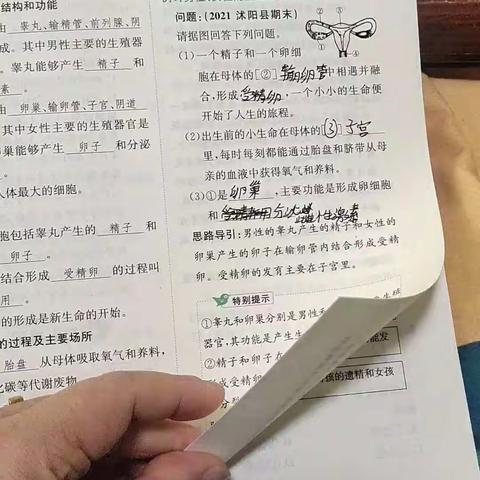 结构和功能
由 睾丸、输精管、前列腺、阴
成。其中男性主要的生殖器
睾丸能够产生 精子 和
素。
由 卵巢、输卵管、子宫、阴道
其中女性主要的生殖器官是
巢能够产生 卵子 和分泌
人体最大的细胞。
胞包括睾丸产生的 精子 和
卵子。
结合形成 受精卵 的过程叫
用。
的形成是新生命的开始。
的过程及主要场所
胎盘 从母体吸取氧气和养料,
化碳等代谢废物
问题:(2021 沭阳县期末)
请据图回答下列问题。
①
②
③
④
(1)一个精子和一个卵细
胞在母体的[②]输卵管中相遇并融
合,形成受精卵,一个小小的生命便
开始了人生的旅程。
(2)出生前的小生命在母体的[③]子宫
里,每时每刻都能通过胎盘和脐带从母
亲的血液中获得氧气和养料。
(3)①是卵巢,主要功能是形成卵细胞
和 分泌雌性激素
思路导引:男性的睾丸产生的精子和女性的
卵巢产生的卵子在输卵管内结合形成受精
卵。受精卵的发育主要在子宫里。
特别提示
①睾丸和卵巢分别是男性和
器官,其功能是产生生
能发
②精子和卵子在
形成受精卵
孩的遗精和女孩